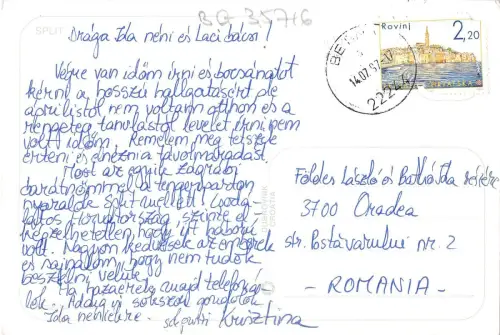 BG 35716
SPLIT
Drága Ida néni és Laci bácsi!
Végre van időm írni és bocsánatot
kérni a hosszú hallgatásért de
áprilistól nem voltam otthon és a
rengeteg tanulástól levelet írni nem
volt időm. Remélem meg tetszik
érteni és elnézni a távolmaradást.
Most az egyik zágrábi
barátnőmmel a tengerparton
nyaralok Split mellett. Csodá-
latos Horvátország, szinte el
képzelhetetlen, hogy itt háború
volt. Nagyon kedvesek az emberek
és sajnálom, hogy nem tudok
beszélni velük.
Ha hazaérek majd telefoná-
lok. Addig is sokszor gondolok
Ida nénikére.
Krisztina
CROATIA
Rovinj
2,20
14.07.97-17
22244
Földes László és Ida
3700 Oradea
str. Postăvarului nr. 2
- ROMANIA -